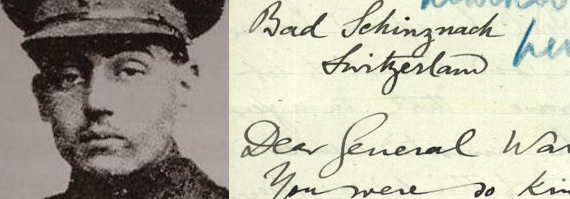 Bad Schinznach
Switzerland
Dear General
You were so